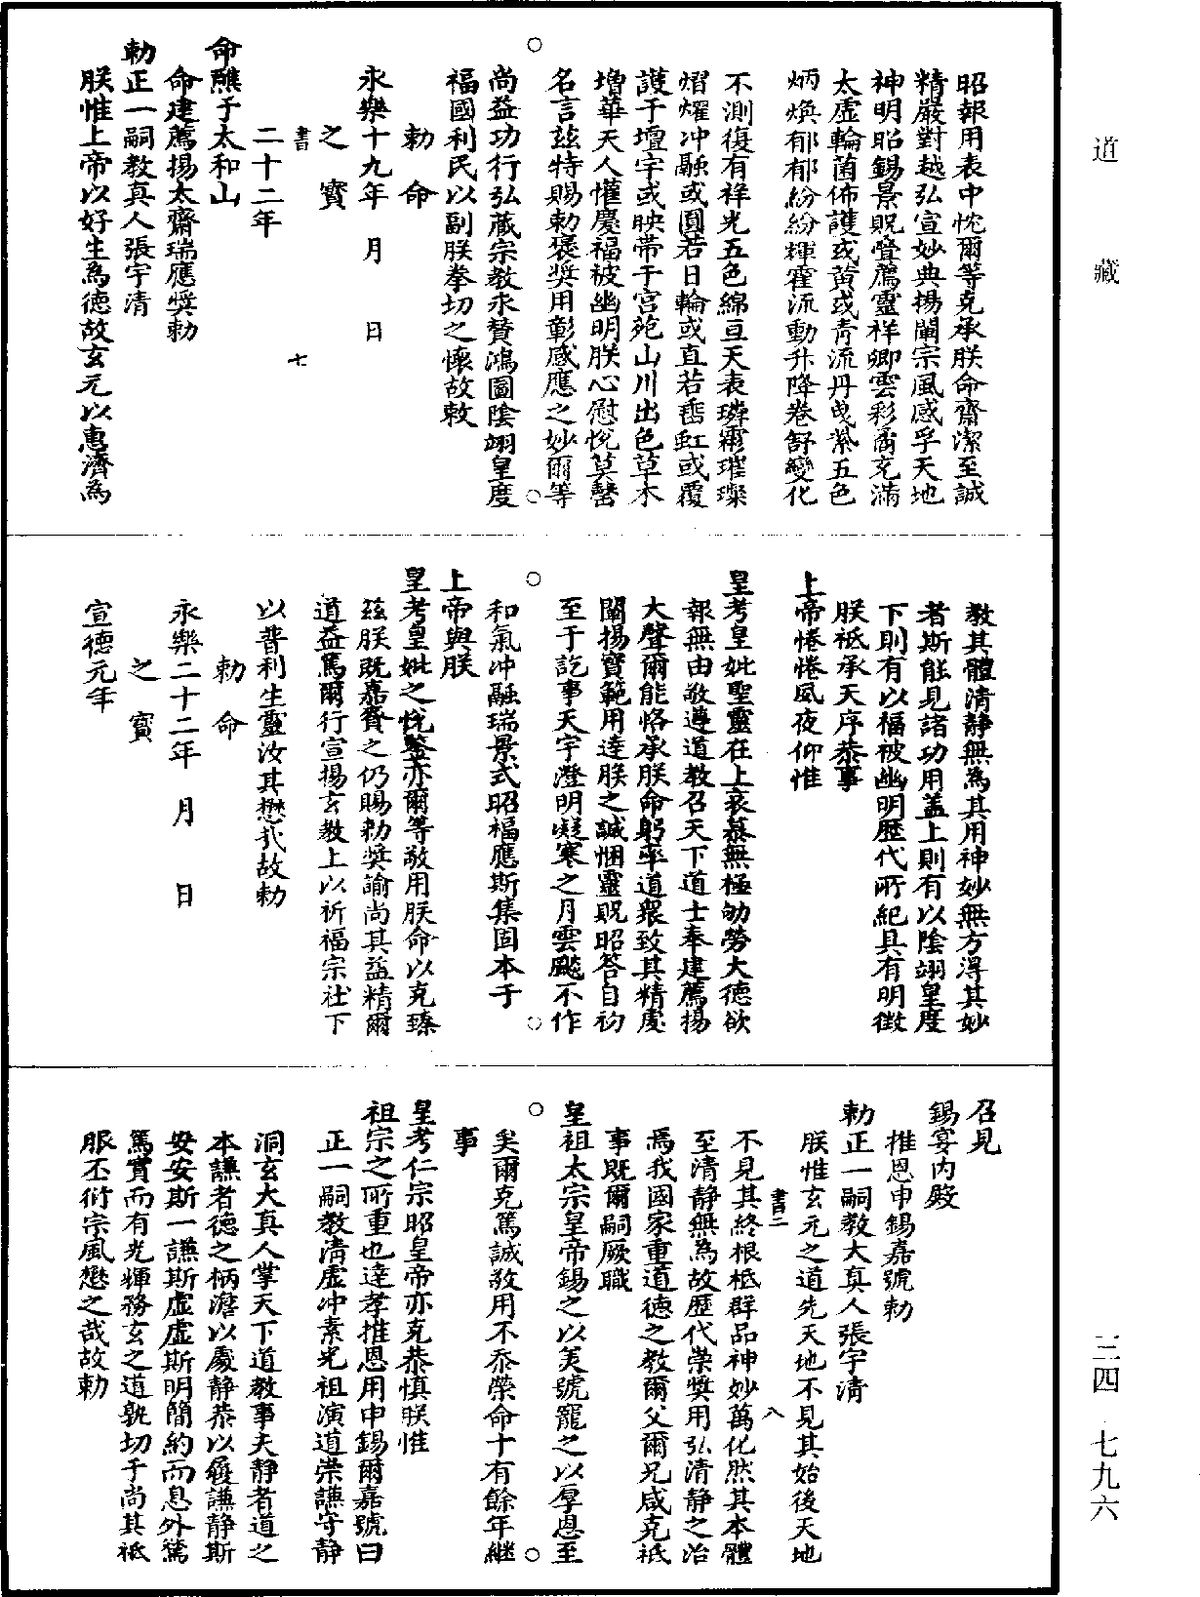 道藏
三四·七九六
昭報用表中忱爾等克承朕命齋潔至誠
精嚴對越弘宣妙典揚闡宗風感孚天地
神明昭錫景貺疊薦靈祥卿雲彩霱充滿
太虛輪菌佈護或黃或青流丹曳紫五色
炳煥郁郁紛紛輝霍流動升降卷舒變化
不測復有祥光五色綿亘天表璘霦璀璨
熠燿冲融或圓若日輪或直若垂虹或覆
護于壇宇或映帶于宮苑山川出色草木
增華天人懽慶福被幽明朕心慰悅莫罄
名言玆特賜勅褒獎用彰感應之妙爾等
尚益功行弘蕆宗教永贊鴻圖陰翊皇度
福國利民以副朕拳切之懷故敕
勅命
永樂十九年 月 日
之寶
書 七
二十二年
命醮于太和山
命建薦揚太齋瑞應獎勅
勅正一嗣教真人張宇清
朕惟上帝以好生為德故玄元以惠濟為
教其體清靜無為其用神妙無方淂其妙
者斯能見諸功用盖上則有以陰翊皇度
下則有以福被幽明歷代所紀具有明徵
朕祗承天序恭事
上帝惓惓夙夜仰惟
皇考皇妣聖靈在上哀慕無極劬勞大德欲
報無由敬遵道教召天下道士奉建薦揚
大齋爾能恪承朕命躬率道眾致其精虔
闡揚寶範用達朕之誠悃靈貺昭答自初
至于訖事天宇澄明凝寒之月雲飈不作
和氣冲融瑞景式昭福應斯集固本于
上帝與朕
皇考皇妣之悅鑒亦爾等敬用朕命以克臻
玆朕既嘉賚之仍賜勅獎諭尚其益精爾
道益篤爾行宣揚玄教上以祈福宗社下
以普利生靈汝其懋哉故勅
勅命
永樂二十二年 月 日
之寶
宣德元年
召見
錫宴內殿
推恩申錫嘉號勅
勅正一嗣教大真人張宇清
朕惟玄元之道先天地不見其始後天地
書二 八
不見其終根柢群品神妙萬化然其本體
至清靜無為故歷代榮獎用弘清靜之治
焉我國家重道德之教爾父爾兄咸克祗
事既爾嗣厥職
皇祖太宗皇帝錫之以美號寵之以厚恩至
矣爾克篤誠敬用不忝榮命十有餘年繼
事
皇考仁宗昭皇帝亦克恭慎朕惟
祖宗之所重也達孝推恩用申錫爾嘉號曰
正一嗣教清虛冲素光祖演道崇謙守靜
洞玄大真人掌天下道教事夫靜者道之
本謙者德之柄澹以處靜恭以履謙靜斯
安安斯一謙斯虛虛斯明簡約而息外篤
篤實而有光輝務玄之道孰切于尚其祗
服丕衍宗風懋之哉故勅